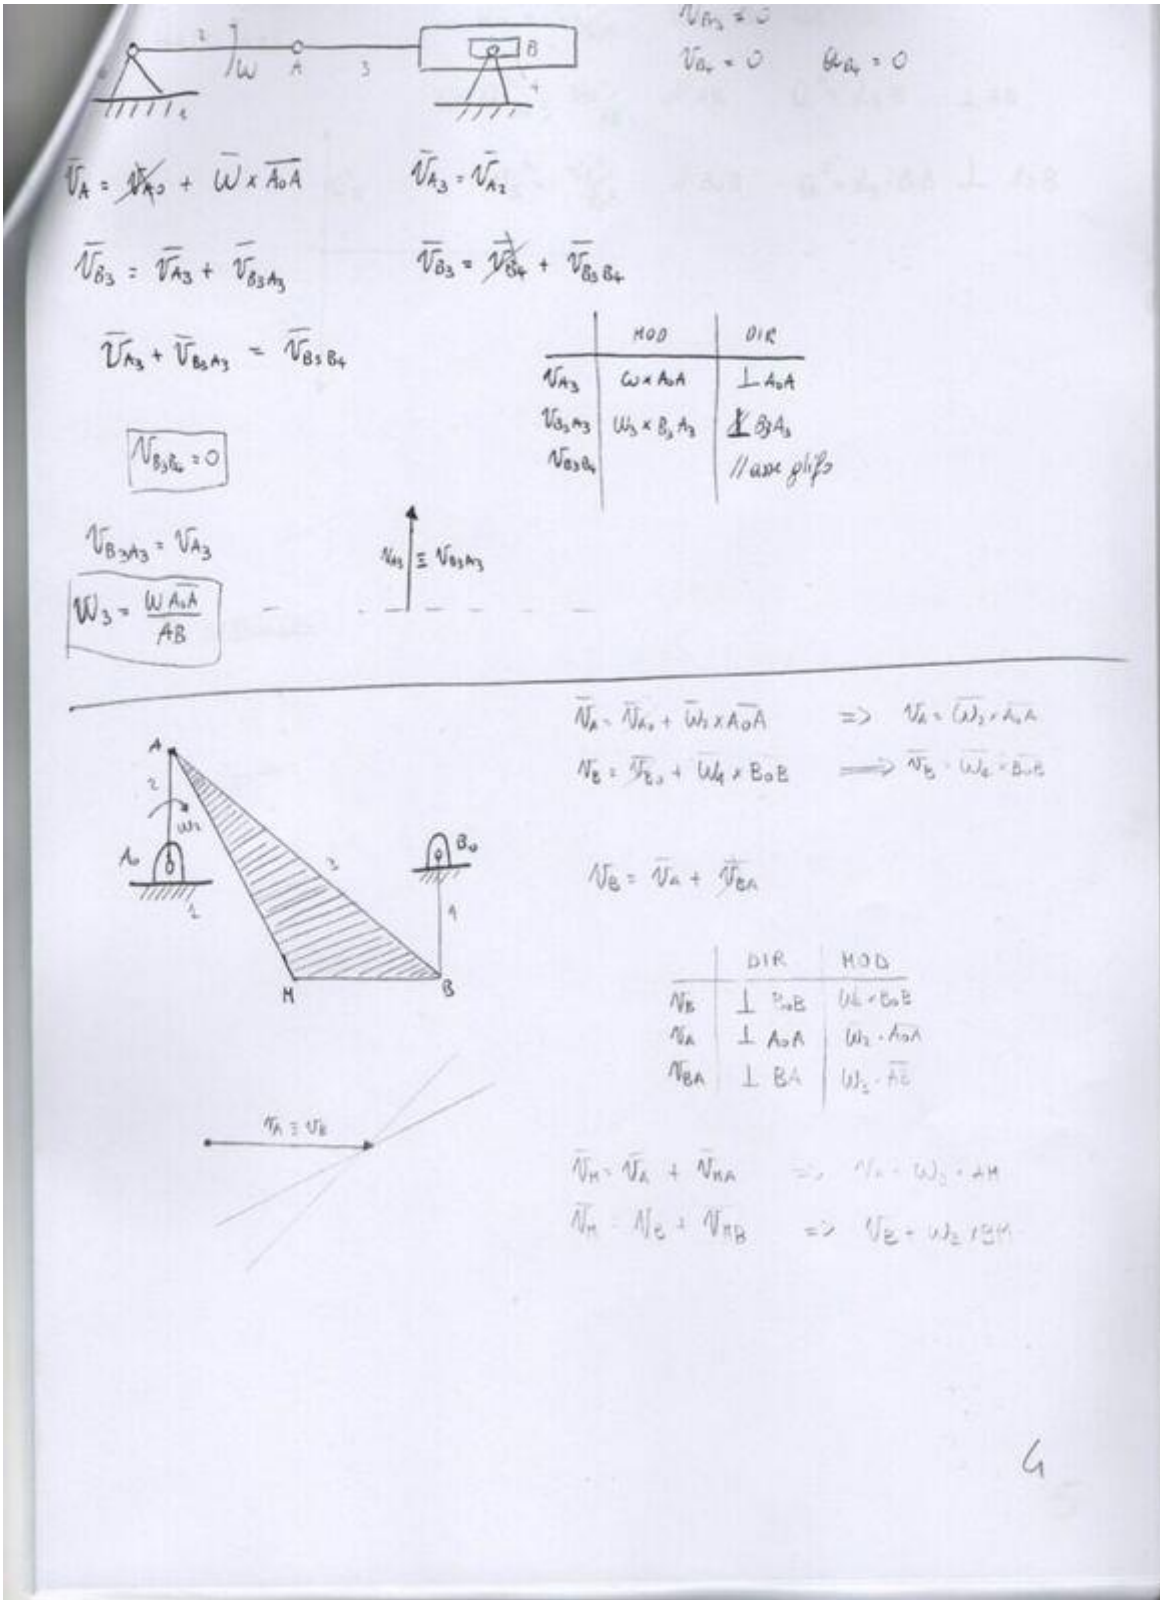 v_B3 = 0
v_B4 = 0 a_B4 = 0
2 ω A 3 B 4
1
v̄_A = v̄_A0 + ω̄ × A̅₀A̅ v̄_A3 = v̄_A2
v̄_B3 = v̄_A3 + v̄_B3A3 v̄_B3 = v̄_B4 + v̄_B3B4
v̄_A3 + v̄_B3A3 = v̄_B3B4
MOD DIR
v_A3 ω × A₀A ⊥ A₀A
v_B3A3 ω₃ × B₃A₃ ⊥ B₃A₃
v_B3B4 // asse glifo
v_B3B4 = 0
v_B3A3 = v_A3
v_A3 ≡ v_B3A3
ω₃ = ω A₀A / AB
v̄_A = v̄_A0 + ω̄₂ × A̅₀A̅ => v_A = ω̄₂ × A̅₀A̅
v_B = v̄_B0 + ω̄₄ × B₀B => v̄_B = ω̄₄ × B̅₀B̅
A
2
ω₂
A₀
1
3
B₀
4
M B
v_B = v̄_A + v̄_BA
DIR MOD
v_B ⊥ B₀B ω₄ × B₀B
v_A ⊥ A₀A ω₂ · A̅₀A̅
v_BA ⊥ BA ω₃ · A̅B̅
v_A ≡ v_B
v̄_M = v̄_A + v̄_MA => v_A + ω₃ · AM
v̄_M = v_B + v_MB => v_B + ω₂ × BM
4